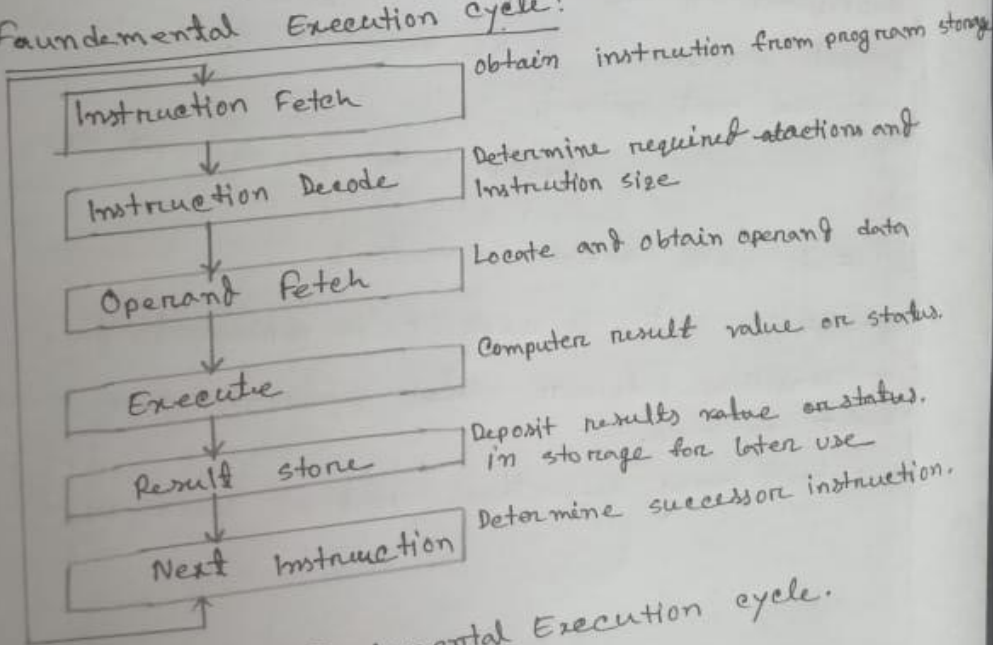 Faundemental Execution cycle:
Instruction Fetch
obtain instrution from program storage
Instruction Decode
Determine required actions and
Instrution size
Operand fetch
Locate and obtain operand data
Executie
Computer result value or status.
Result store
Deposit results value or status.
in storage for later use
Next Instruction
Determine successor instruction.
Execution cycle.